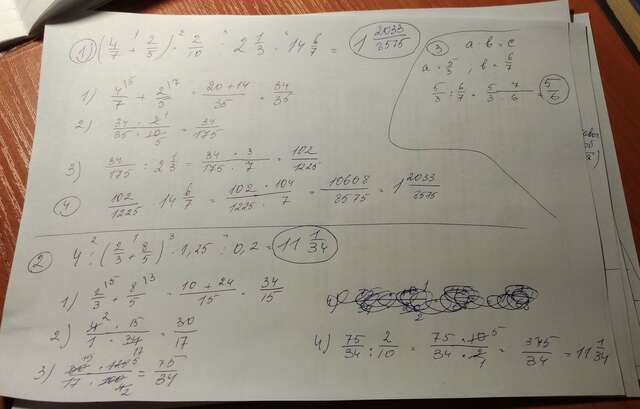 1) (4/7 + 2/5) · 2/10 : 2 1/3 · 14 6/7 = 1 2033/8575
1) 4/7 + 2/5 = 20+14/35 = 34/35
2) 34 · 2/35 · 10 = 34/175
3) 34/175 : 2 1/3 = 34 · 3/175 · 7 = 102/1225
4) 102/1225 · 14 6/7 = 102 · 104/1225 · 7 = 10608/8575 = 1 2033/8575
3 a · b = c
a = 5/3, b = 6/7
5/3 : 6/7 = 5/3 · 7/6 = 5/6
2 4 : (2/3 + 8/5) · 1,25 : 0,2 = 11 1/34
1) 2/3 + 8/5 = 10 + 24/15 = 34/15
2) 4 · 15/1 · 34 = 30/17
3) 30 · 125/17 · 100 = 75/34
4) 75/34 : 2/10 = 75 · 10/34 · 2 = 375/34 = 11 1/34